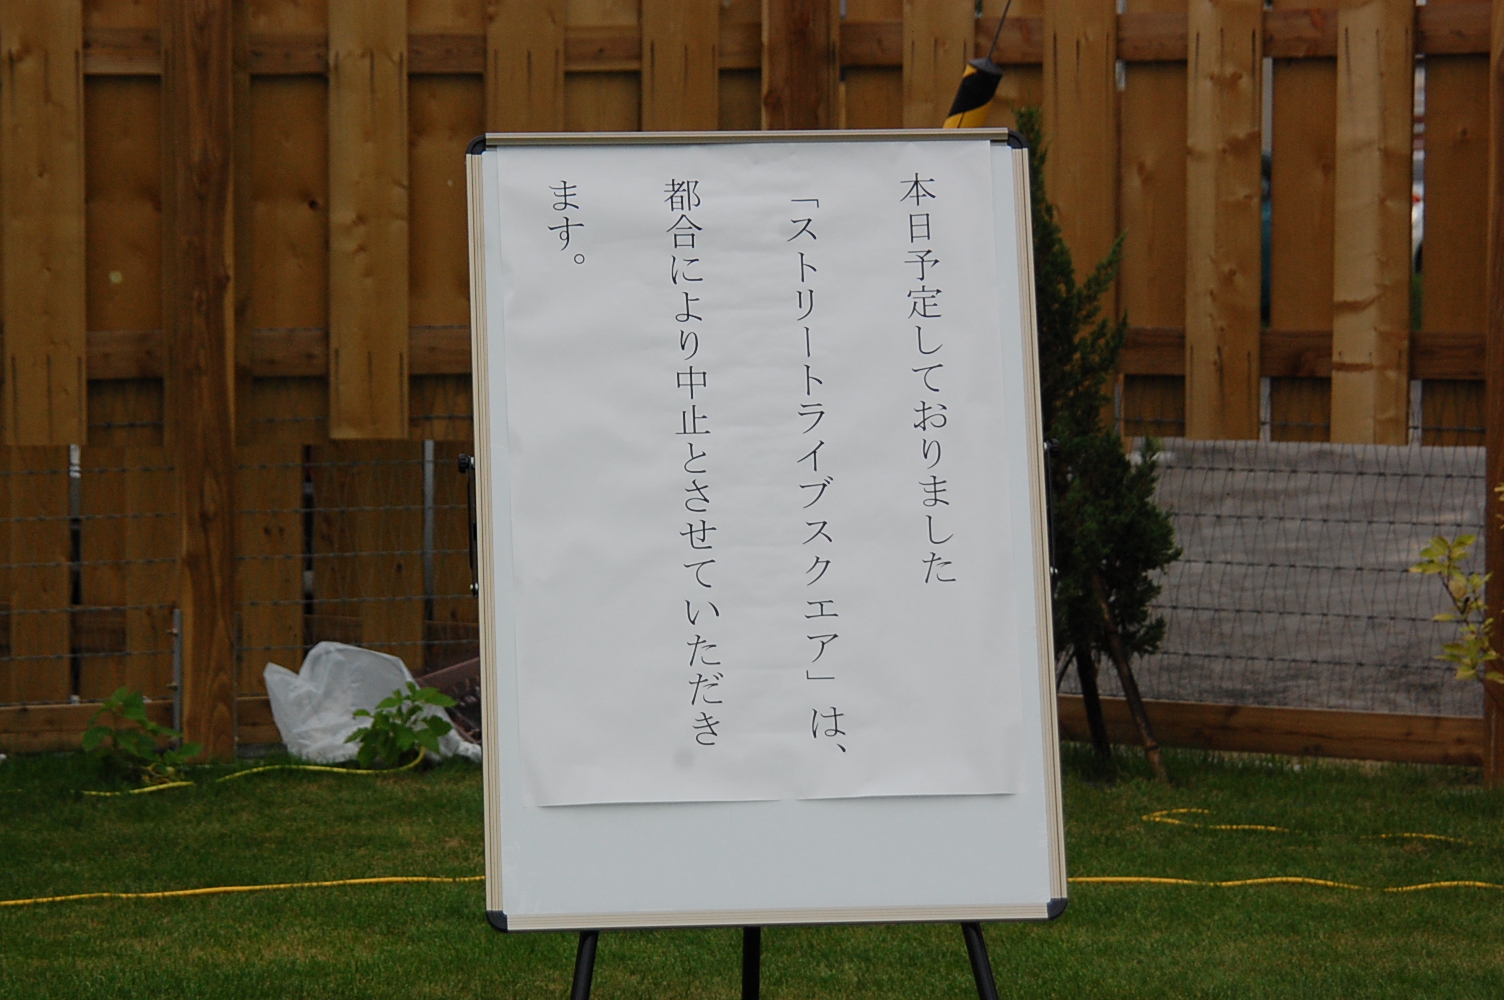 本日予定しておりました
「ストリートライブスクエア」は、
都合により中止とさせていただき
ます。